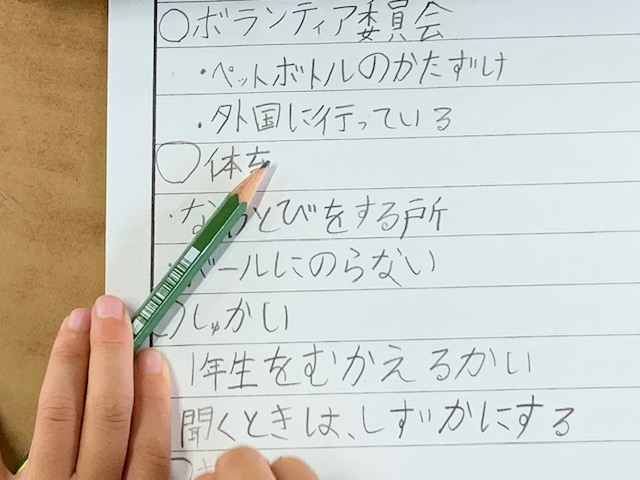 ○ボランティア委員会
・ペットボトルのかたずけ
・外国に行っている
○体
・なわとびをする所
・ボールにのらない
○しゅかい
1年生をむかえるかい
聞くときは、しずかにする